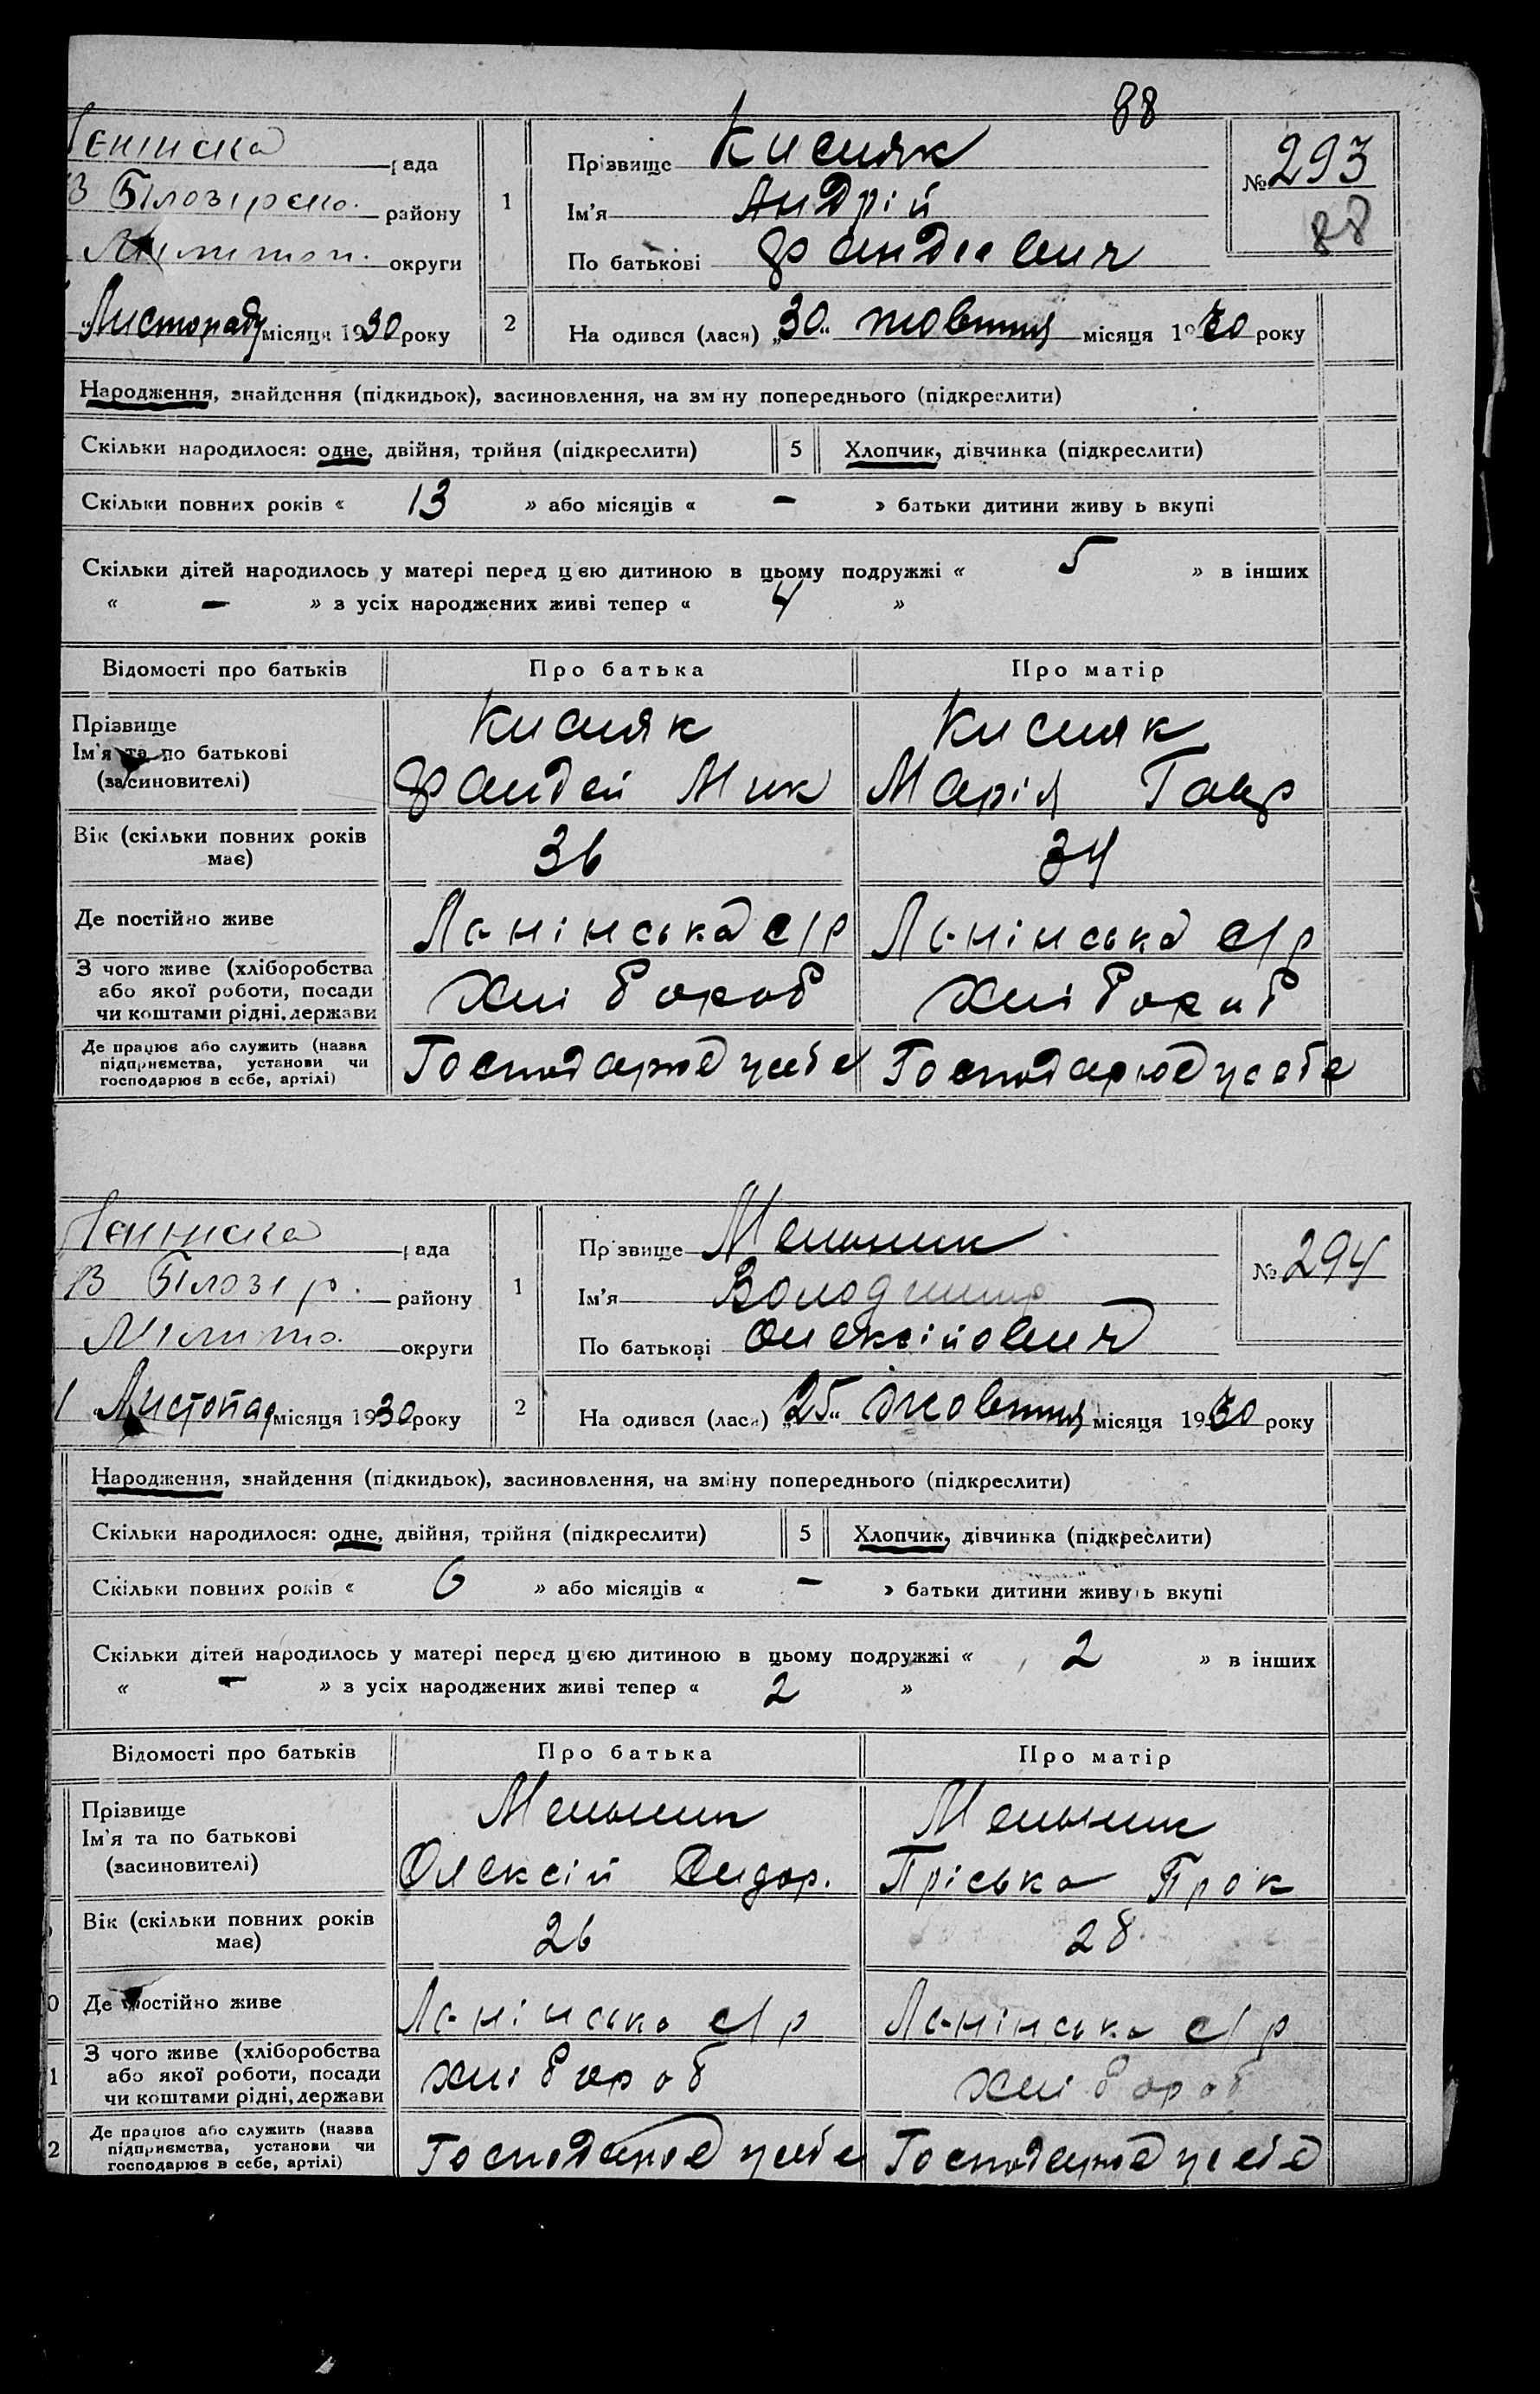 88
Ленінска рада
В Білозірско. району
Мелитоп. округи
Листопаду місяця 1930 року
1
Прізвище Кисляк
Ім'я Андрій
По батькові
№ 293
88
2
На одився (лася) „30“ жовтня місяця 1930 року
Народження, знайдення (підкидьок), засиновлення, на зм ну попереднього (підкреслити)
Скільки народилося: одне, двійня, трійня (підкреслити) 5 Хлопчик, дівчинка (підкреслити)
Скільки повних років « 13 » або місяців « - » батьки дитини живу ь вкупі
Скільки дітей народилось у матері перед цею дитиною в цьому подружжі « 5 » в інших
« - » з усіх народжених живі тепер « 4 »
Відомості про батьків Про батька Про матір
Прізвище Кисляк Кисляк
Ім'я та по батькові Мик Марія Гавр
(засиновителі)
Вік (скільки повних років має) 36 34
Де постійно живе Ленінська с/р Ленінська с/р
З чого живе (хліборобства
або якої роботи, посади
чи коштами рідні, держави
хлібороб хлібороб
Де працює або служить (назва
підприємства, установи чи
господарює в себе, артілі)
Господарює у себе Господарює у себе
Ленінска рада
В Білозір. району
Меліто. округи
Листопад місяця 1930 року
1
Пр звище Мельник
Ім'я Володимир
По батькові Олексійович
№ 294
2
На одився (лася) „25“ жовтня місяця 1930 року
Народження, знайдення (підкидьок), засиновлення, на зміну попереднього (підкреслити)
Скільки народилося: одне, двійня, трійня (підкреслити) 5 Хлопчик, дівчинка (підкреслити)
Скільки повних років « 6 » або місяців « - » батьки дитини живу ь вкупі
Скільки дітей народилось у матері перед цею дитиною в цьому подружжі « 2 » в інших
« - » з усіх народжених живі тепер « 2 »
Відомості про батьків Про батька Про матір
Прізвище Мельник Мельник
Ім'я та по батькові Олексій Сидор. Пріська Прок
(засиновителі)
Вік (скільки повних років має) 26 28
Де постійно живе Ленінська с/р Ленінська с/р
З чого живе (хліборобства
або якої роботи, посади
чи коштами рідні, держави
хлібороб хлібороб
Де працює або служить (назва
підприємства, установи чи
господарює в себе, артілі)
Господарює у себе Господарює у себе